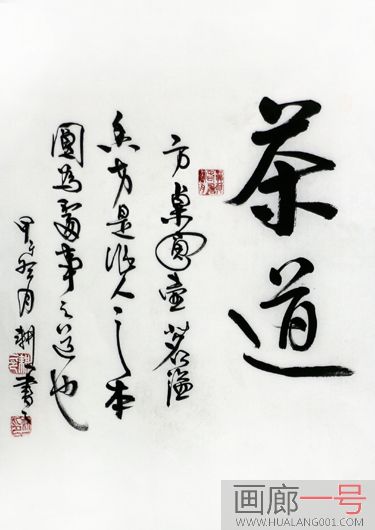 茶道
方桌圓壶茗溢
香方是做人之本
圓為處事之道也
甲午冬月書
画廊一号
WWW.HUALANG001.COM